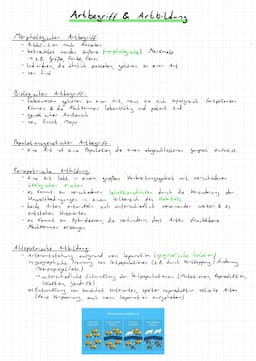 Artbegriff & Artbildung
Morphologischer Artbegriff:
- Artdefinition nach Aussehen
- betrachtet werden äußere (morphologische) Merkmale
→ z.B. Größe, Farbe, Form
- Individuen, die ähnlich aussehen, gehören zu einer Art
- von Linné
Biologischer Artbegriff:
- Lebewesen gehören zu einer Art, wenn sie sich erfolgreich fortpflanzen
können & die Nachkommen lebensfähig und fertil sind
- genetischer Austausch
- von Ernst Mayr
Populationsgenetischer Artbegriff:
- eine Art ist eine Population, die einen abgeschlossenen Genpool aufweist
Sympatrische Artbildung:
- eine Art lebt in einem großen Verbreitungsgebiet mit verschiedenen
ökologischen Nischen
- es kommt zu verschiedenen Selektionsdrücken durch die Veränderung der
Umweltbedingungen in einem Teilbereich des Habitats
- beide Arten entwickeln sich unterschiedlich voneinander weiter & es
entstehen Unterarten
- es kommt zu Hybridformen, die verhindern, dass Arten fruchtbare
Nachkommen erzeugen
Allopatrische Artbildung:
- Artenentstehung aufgrund von Separation (geografische Isolation)
→ geographische Trennung von Teilpopulationen (z.B. durch Verschleppung / Änderung
Meeresspiegelhöhe)
→ unterschiedliche Entwicklung der Teilpopulationen (Mutationen, Reproduktion,
Selektion, Gendrift)
→ Entwicklung von zunächst Unterarten, später reproduktiv isolierte Arten
(keine Verpaarung, auch wenn Separation aufgehoben)